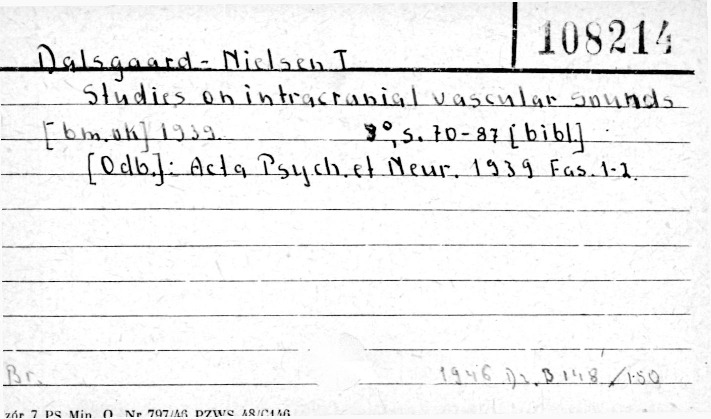 108214
Dalsgaard-Nielsen T
Studies on intracranial vascular sounds
[bm.ok] 1939 8°, s. 70-87 [bibl]
[Odb.]: Acta Psych. et Neur. 1939 Fas. 1-2.
Br. 1946 Dr. B 148 /150
zór 7 PS Min. O. Nr 797/46 PZWS 48/C146